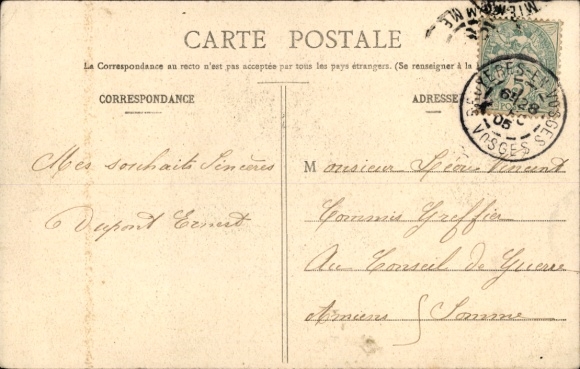 CARTE POSTALE
La Correspondance au recto n'est pas acceptée par tous les pays étrangers. (Se renseigner à la
CORRESPONDANCE
ADRESSE
BRUYERES EN VOSGES
VOSGES
6 28
05
Mes souhaits Sincères
Dupont Ernest
Monsieur Léon Vincent
Commis Greffier
Au Conseil de Guerre
Amiens Somme